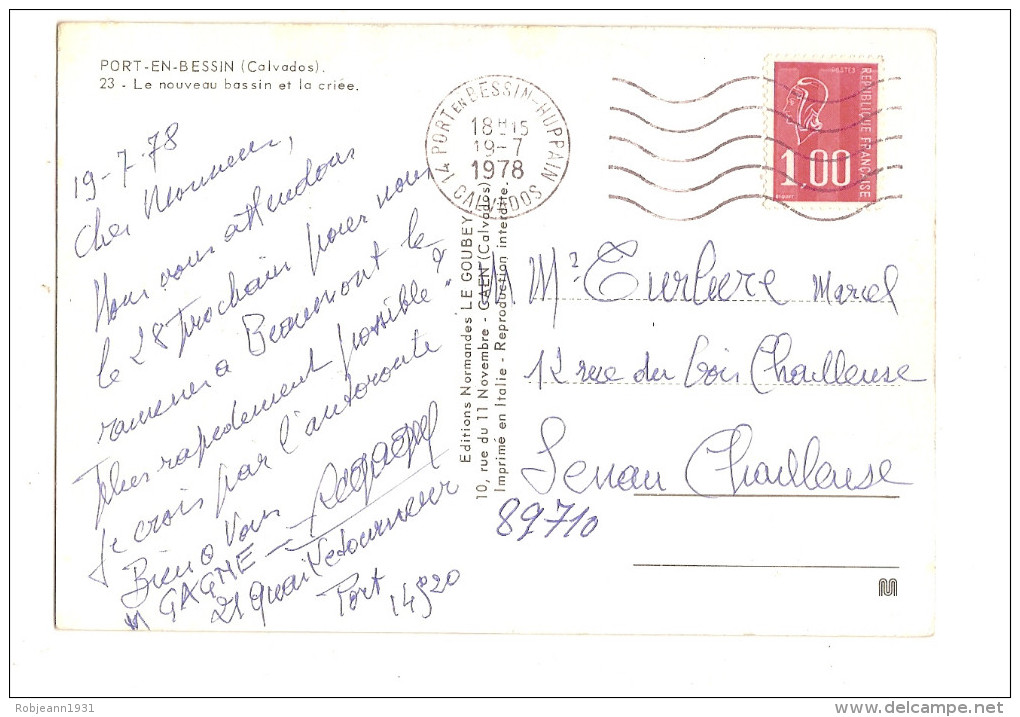 PORT-EN-BESSIN (Calvados).
23 - Le nouveau bassin et la criée.
19-7-78
Cher Monsieur,
Nous vous attendons
le 28 Prochain pour nous
ramener a Beaumont le
plus rapidement possible
je crois par l'autoroute
Bien a Vous
M GAGNE
21 Quai Letourneur
Port 14520
Editions Normandes LE GOUBEY
10, rue du 11 Novembre - CAEN (Calvados)
Imprimé en Italie - Reproduction interdite.
14 PORT EN BESSIN-HUPPAIN
18H15
19-7
1978
CALVADOS
POSTES
REPUBLIQUE FRANÇAISE
1,00
Marcel
12 rue du bois Chailleuse
Senan Chailleuse
89710
M
Robjeann1931
www.delcampe.net